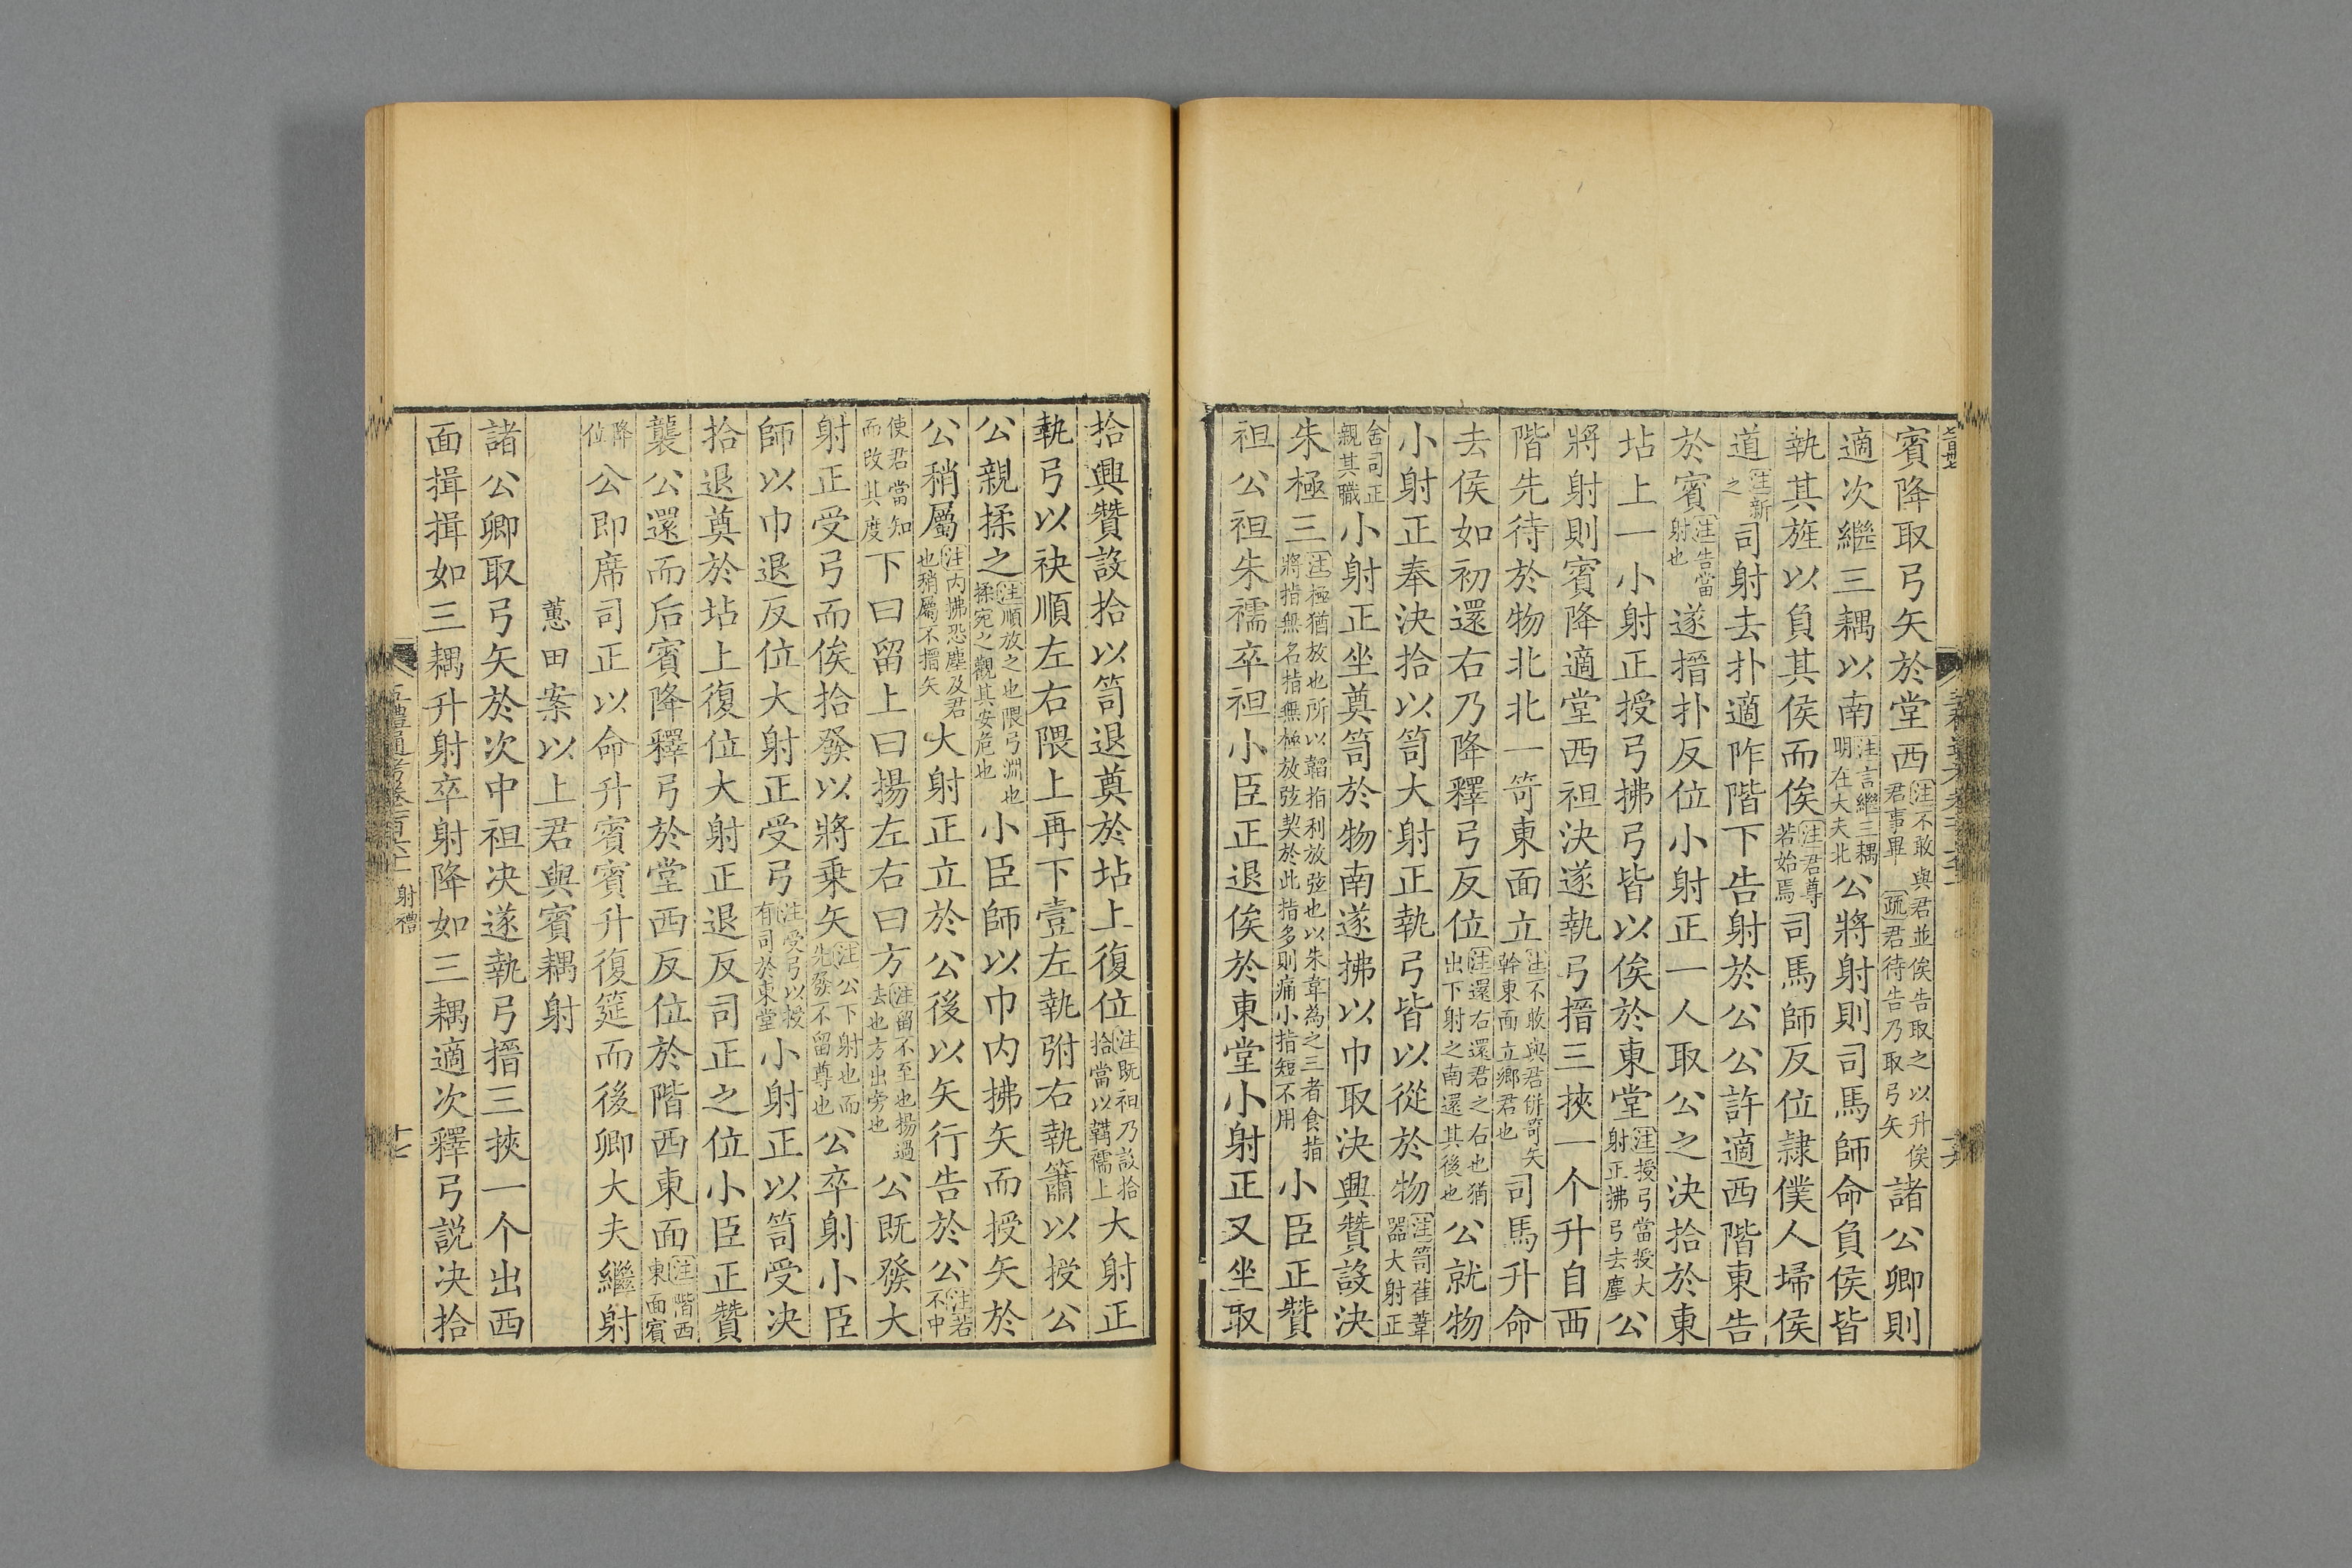 賓降取弓矢於堂西注不敢與君並俟告取之以升俟君事畢疏君待告乃取弓矢諸公卿則
適次繼三耦以南注言繼三耦明在大夫北公將射則司馬師命負侯皆
執其旌以負其侯而俟注君尊若始焉司馬師反位隷僕人埽侯
道注新之司射去扑適阼階下告射於公公許適西階東告
於賓注告當射也遂搢扑反位小射正一人取公之決拾於東
坫上一小射正授弓拂弓皆以俟於東堂注授弓當授大射正拂弓去塵公
將射則賓降適堂西袒決遂執弓搢三挾一个升自西
階先待於物北北一笴東面立注不敢與君併笴矢幹東面立鄉君也司馬升命
去侯如初還右乃降釋弓反位注還右還君之右也猶出下射之南還其後也公就物
小射正奉決拾以笥大射正執弓皆以從於物注笥萑葦器大射正
舍司正親其職小射正坐奠笥於物南遂拂以巾取決興贊設決
朱極三注極猶放也所以韜指利放弦也以朱韋為之三者食指將指無名指無極放弦契於此指多則痛小指短不用小臣正贊
袒公袒朱襦卒袒小臣正退俟於東堂小射正又坐取
拾興贊設拾以笥退奠於坫上復位注既袒乃設拾拾當以韝襦上大射正
執弓以袂順左右隈上再下壹左執弣右執簫以授公
公親揉之注順放之也隈弓淵也揉宛之觀其安危也小臣師以巾内拂矢而授矢於
公稍屬注内拂恐塵及君也稍屬不搢矢大射正立於公後以矢行告於公注若不中
使君當知而改其度下曰留上曰揚左右曰方注留不至也揚過去也方出旁也公既發大
射正受弓而俟拾發以將乘矢注公下射也而先發不留尊也公卒射小臣
師以巾退反位大射正受弓注受弓以授有司於東堂小射正以笥受決
拾退奠於坫上復位大射正退反司正之位小臣正贊
襲公還而后賓降釋弓於堂西反位於階西東面注階西東面賓
降位公即席司正以命升賓賓升復筵而後卿大夫繼射
蕙田案以上君與賓耦射
諸公卿取弓矢於次中袒决遂執弓搢三挾一个出西
面揖揖如三耦升射卒射降如三耦適次釋弓説决拾
五禮通考卷一百六十一 射禮
十七